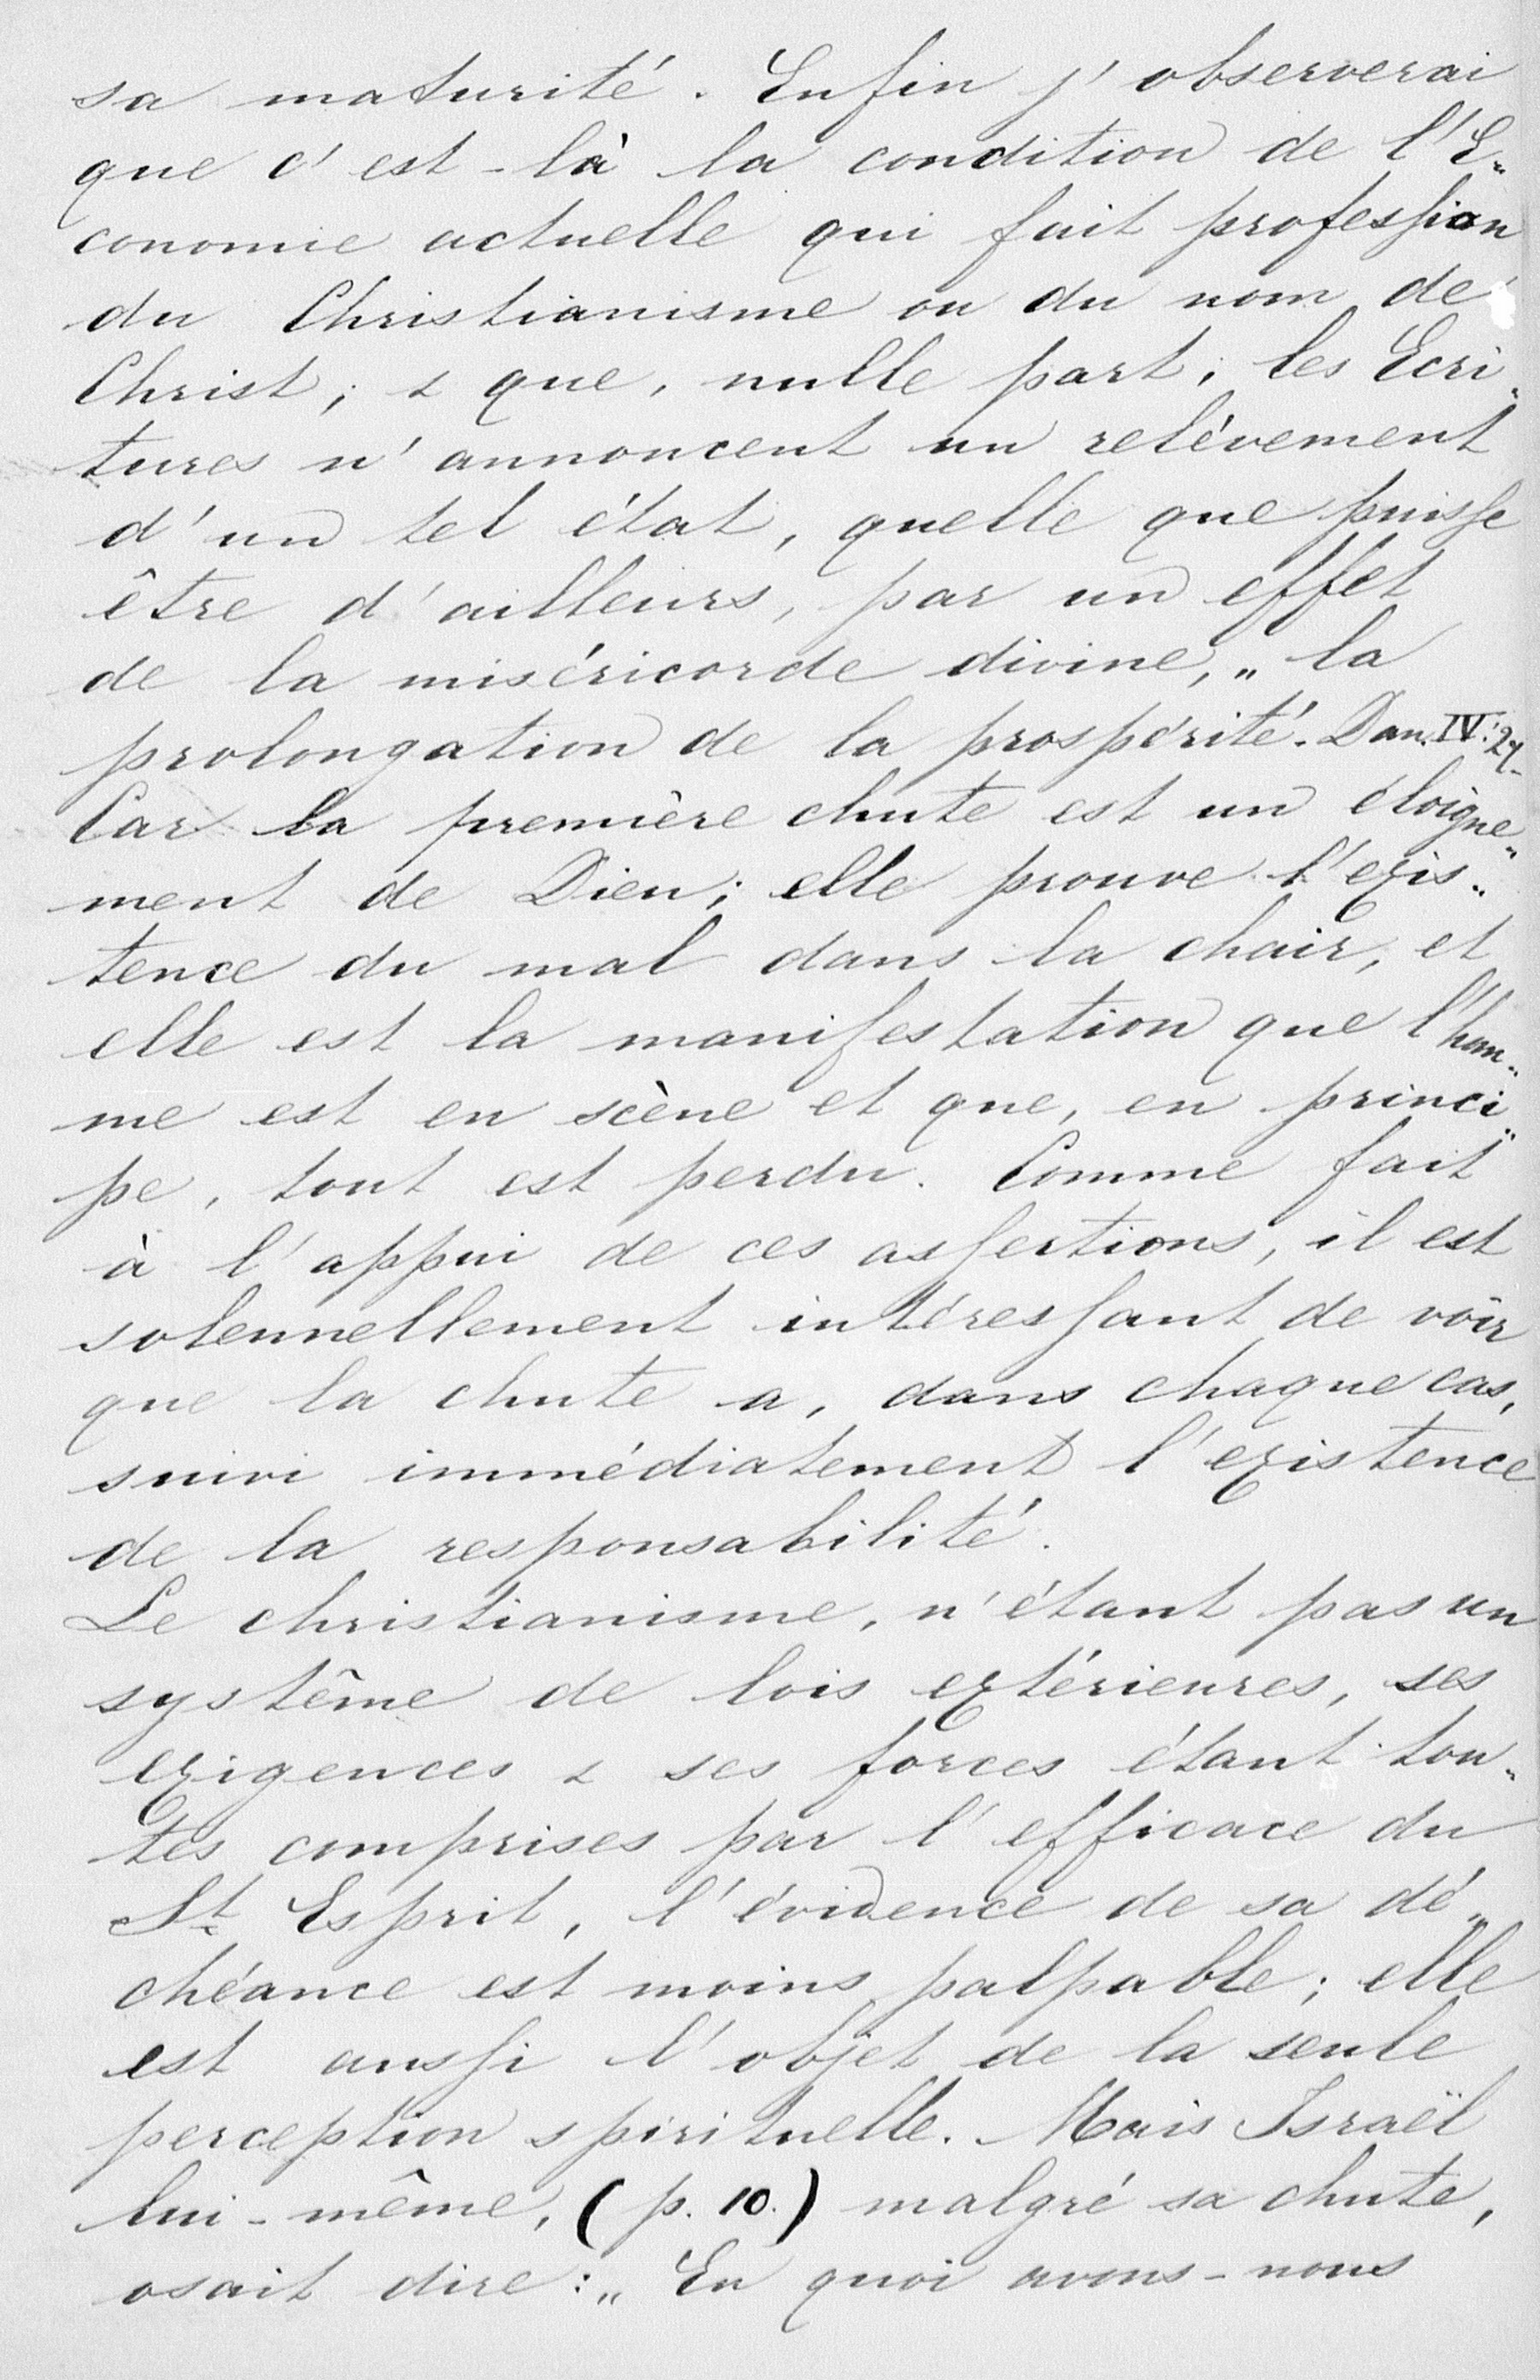 sa maturité. Enfin j'observerai
que c'est-là la condition de l'E„
conomie actuelle qui fait profession
du Christianisme ou du nom de
Christ; & que, nulle part, les Ecri„
tures n'annoncent un relèvement
d'un tel état, quelle que puisse
être d'ailleurs, par un effet
de la miséricorde divine, „ la
prolongation de la prospérité. Dan. IV:27.
Car la première chute est un éloigne„
ment de Dieu; elle prouve l'exis„
tence du mal dans la chair, et
elle est la manifestation que l'hom„
me est en scène et que, en princi„
pe, tout est perdu. Comme fait
à l'appui de ces assertions, il est
solennellement intéressant de voir
que la chute a, dans chaque cas,
suivi immédiatement l'existence
de la responsabilité.
Le christianisme, n'étant pas un
système de lois extérieures, ses
exigences & ses forces étant tou„
tes comprises par l'efficace du
St Esprit, l'évidence de sa dé„
chéance est moins palpable; elle
est aussi l'objet de la seule
perception spirituelle. Mais Israël
lui-même, (p. 10.) malgré sa chute,
osait dire: „ En quoi avons-nous